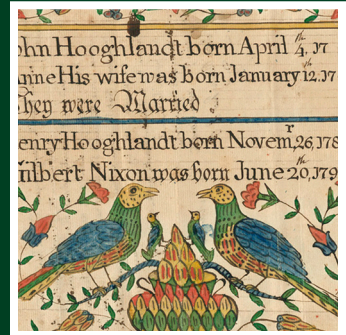 ohn Hooghlandt born April 4,th 17
nne His wife was Born January 12,th 17
hey were Married
enry Hooghlandt born Novemr, 26, 178
ilbert Nixon was born June 20,th 179